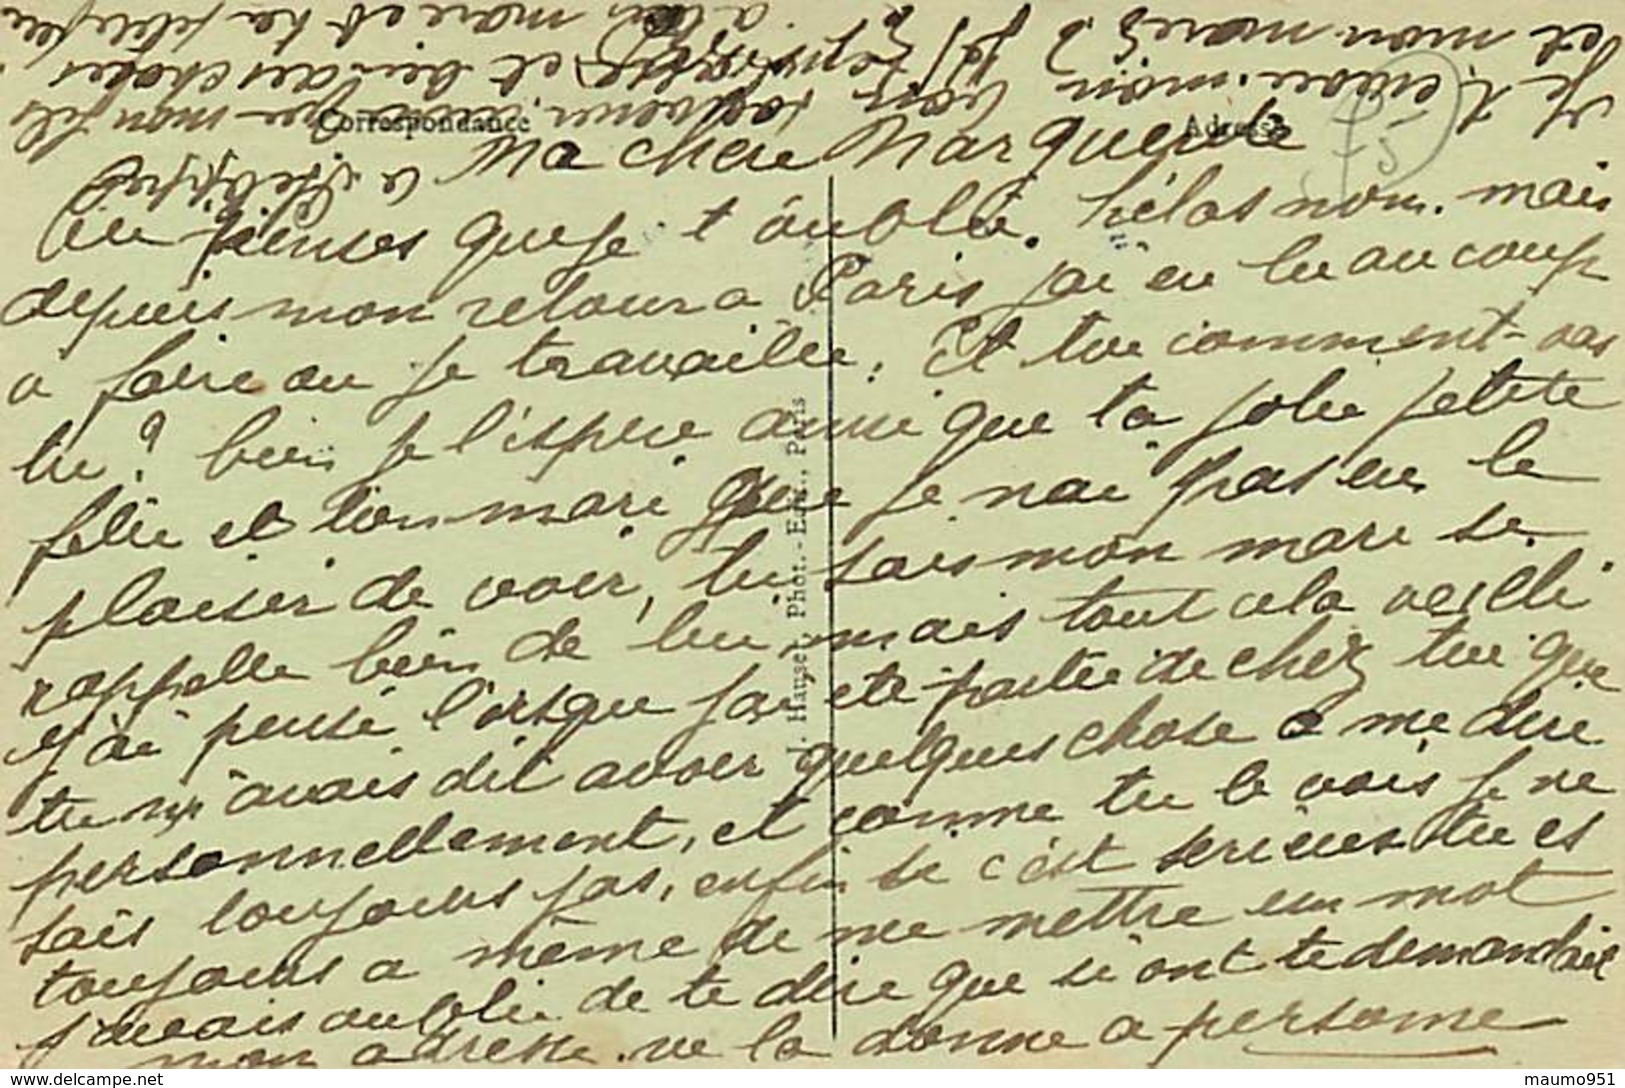 Correspondance
Adresse
Ma chère Marguerite
tu penses que je t'oublie. hélas non. mais
depuis mon retour a Paris jai eu beaucoup
a faire ou je travaille. Et toi comment-vas
tu? bien je l'espère ainsi que ta jolie petite
fille et ton mari que je nai pas eu le
plaisir de voir, tu sais mon mari se
rappelle bien de lui mais tout cela vieilli
j'ai pensé l'orsque jai été partie de chez toi que
tu m'avais dit avoir quelques chose a me dire
personnellement, et comme tu le vois je ne
sais toujours pas, enfin si c'est serieus tu es
toujours a même de me mettre un mot
j'avais oublié de te dire que si ont te demandait
mon adresse. ne la donne a personne
Je t'
mon fils
et mon mari se
et bien des choses
a ton mari et ta petite fille
J. Hauser, Phot.-Edit., Paris
75
maumo951